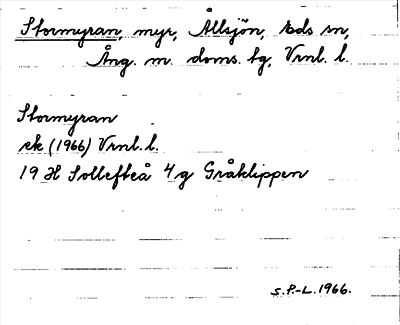 Stormyran, myr, Ållsjön, Eds sn,
Ång. m. doms. tg, Vrnl. l.
Stormyran
ek (1966) Vrnl. l.
19 H Sollefteå 4 g Gråklippen
S.P.-L. 1966.